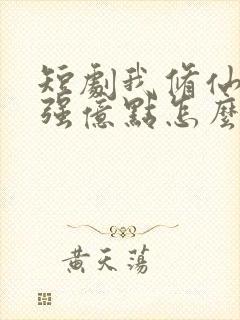 短劇我修仙
强億點怎麼
黃天蕩